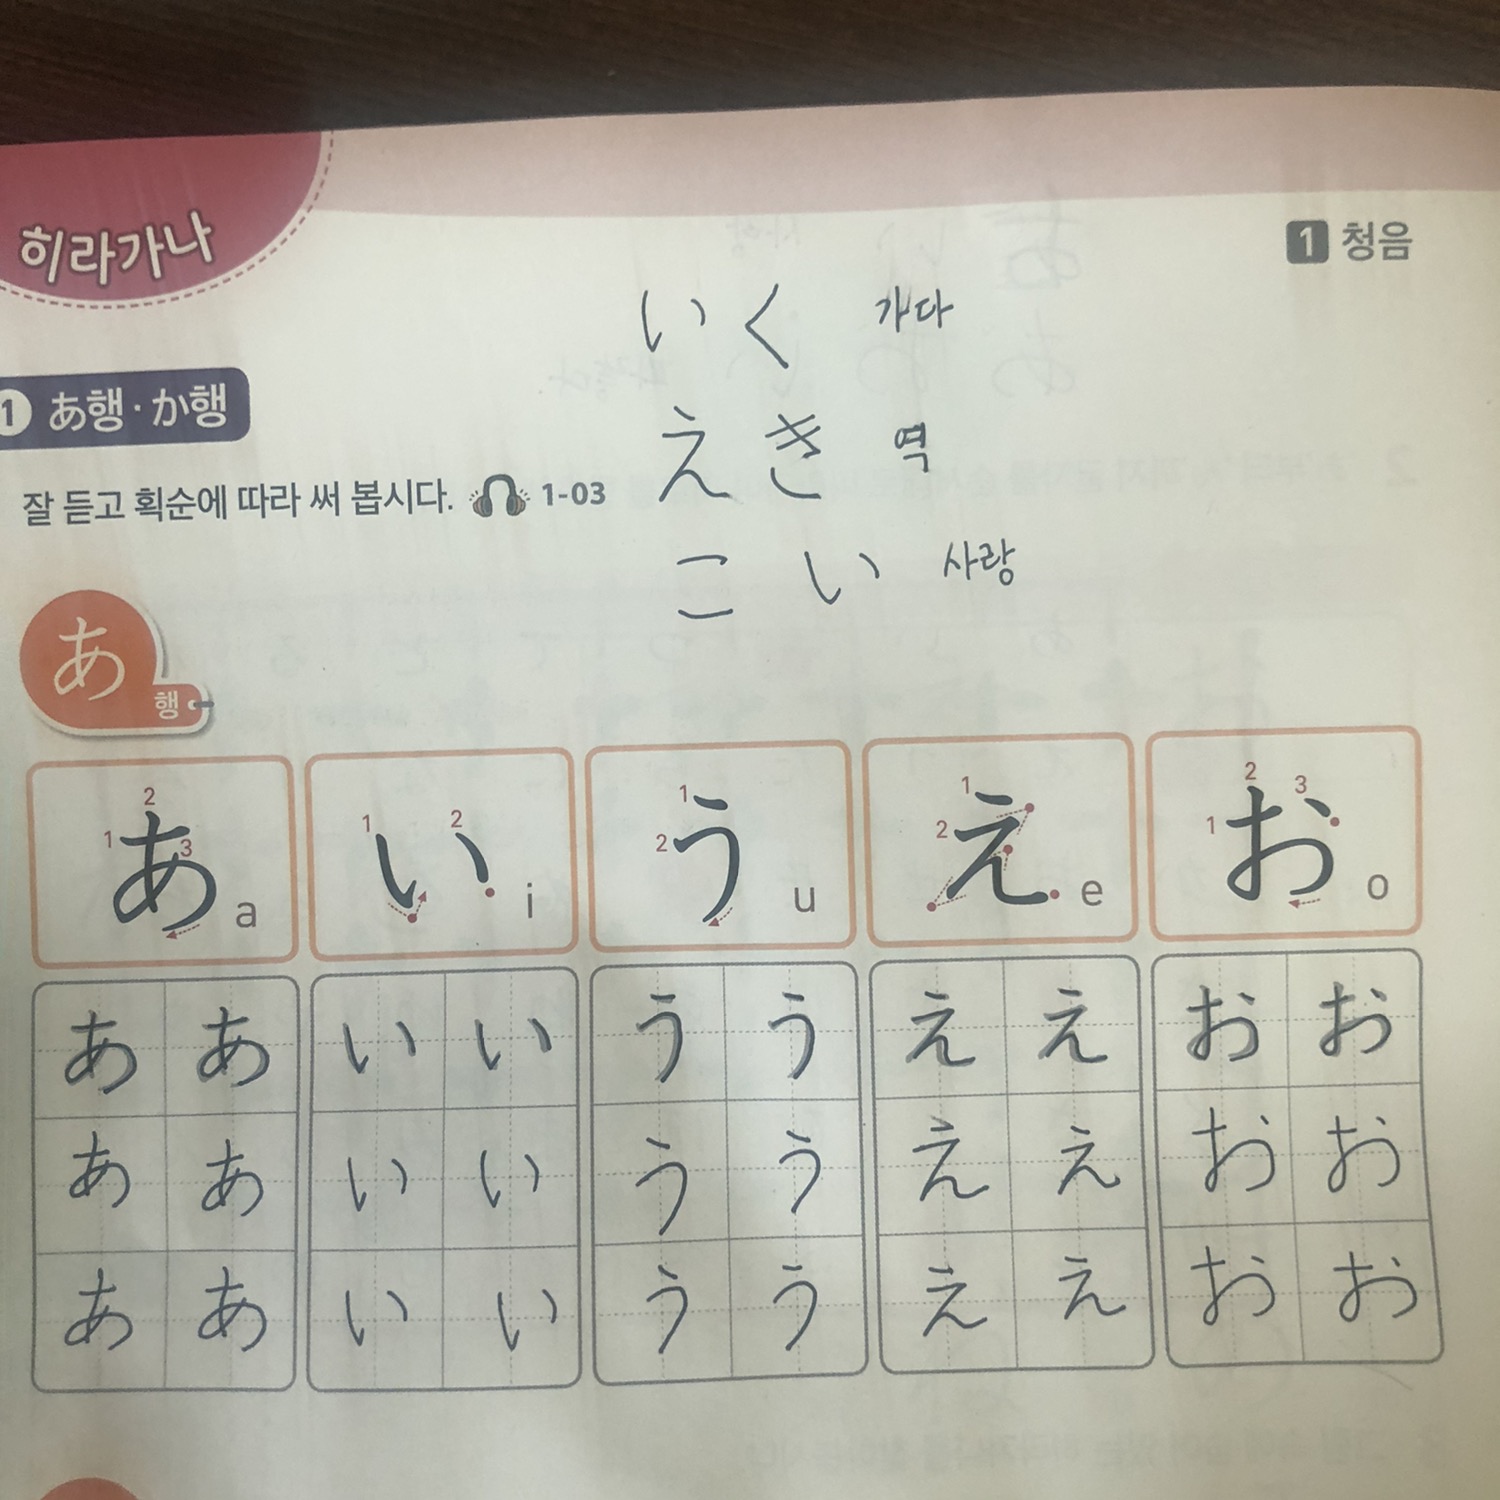 히라가나
1 청음
いく 가다
1 あ行·か行
えき 역
잘 듣고 획순에 따라 써 봅시다. 1-03
こい 사랑
あ 행
1 2 3 あ a
1 2 い i
1 2 う u
1 2 え e
1 2 3 お o
あ あ い い う う え え お お
あ あ い い う う え え お お
あ あ い い う う え え お お